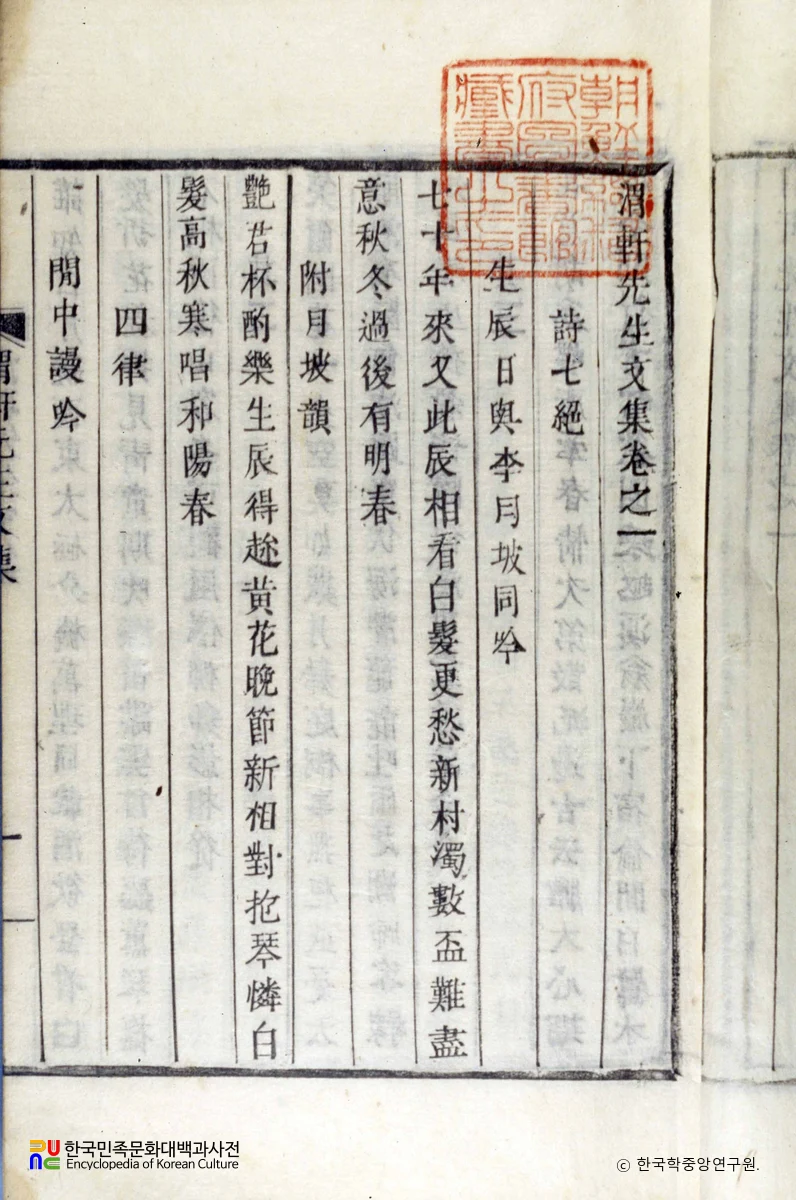 渭軒先生文集卷之一
詩七絕
生辰日與李月坡同吟
七十年來又此辰相看白髮更愁新村濁數盃難盡
意秋冬過後有明春
附月坡韻
艷君杯酌樂生辰得趂黃花晚節新相對抱琴憐白
髮高秋寒唱和陽春
四律
閒中謾吟
渭軒先生文集
朝鮮總督府圖書館藏書之印
한국민족문화대백과사전
Encyclopedia of Korean Culture
ⓒ 한국학중앙연구원.